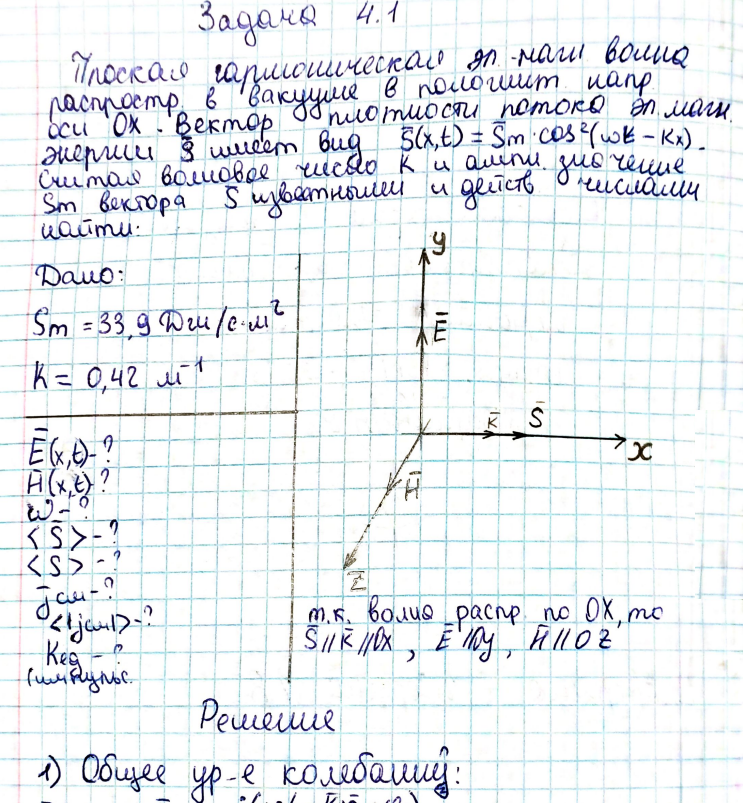 Задача 4.1
Плоская гармоническая эл.-магн волна
распростр. в вакууме в положит напр.
оси OX. Вектор плотности потока эл. магн.
энергии S̄ имеет вид S̄(x,t) = S̄m·cos²(ωt – Kx).
Считая волновое число K и ампл. значение
Sm вектора S̄ известными и действ числами
найти:
Дано:
Sm = 33,9 Дж/с·м²
K = 0,42 м⁻¹
Ē(x,t)-?
H̄(x,t)-?
ω-?
<S̄>-?
<S>-?
j̄см-?
<|jсм|>-?
Kед-?
(импульс.
y
Ē
K̄
S̄
x
H̄
Z̄
т.к. волна распр. по OX, то
S̄//K̄//Ox, Ē//Oy, H̄//OZ
Решение
1) Общее ур-е колебаний: